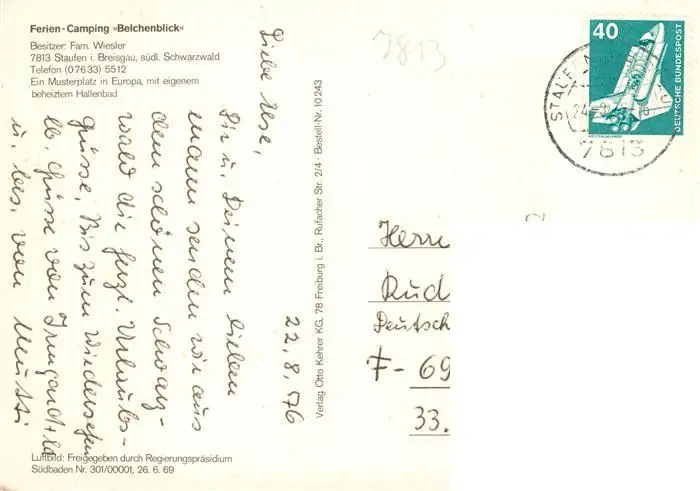 Ferien-Camping »Belchenblick«
Besitzer: Fam. Wiesler
7813 Staufen i. Breisgau, südl. Schwarzwald
Telefon (07633) 5512
Ein Musterplatz in Europa, mit eigenem
beheiztem Hallenbad
7813
40
DEUTSCHE BUNDESPOST
7813
Liebe Ilse,
Dir u. Deinem lieben
Mann senden wir aus
dem schönen Schwarz-
wald die herzl. Urlaubs-
grüsse. Bis zum Wiedersehen
lb. Grüsse von Irmgard +
u. bes. von Mutti
22.8.76
Verlag Otto Kehrer KG. 78 Freiburg i. Br., Rufacher Str. 2/4 · Bestell-Nr. 10243
Herrn
Rud
Deutsch
F-69
33.
Luftbild: Freigegeben durch Regierungspräsidium
Südbaden Nr. 301/00001, 26. 6. 69